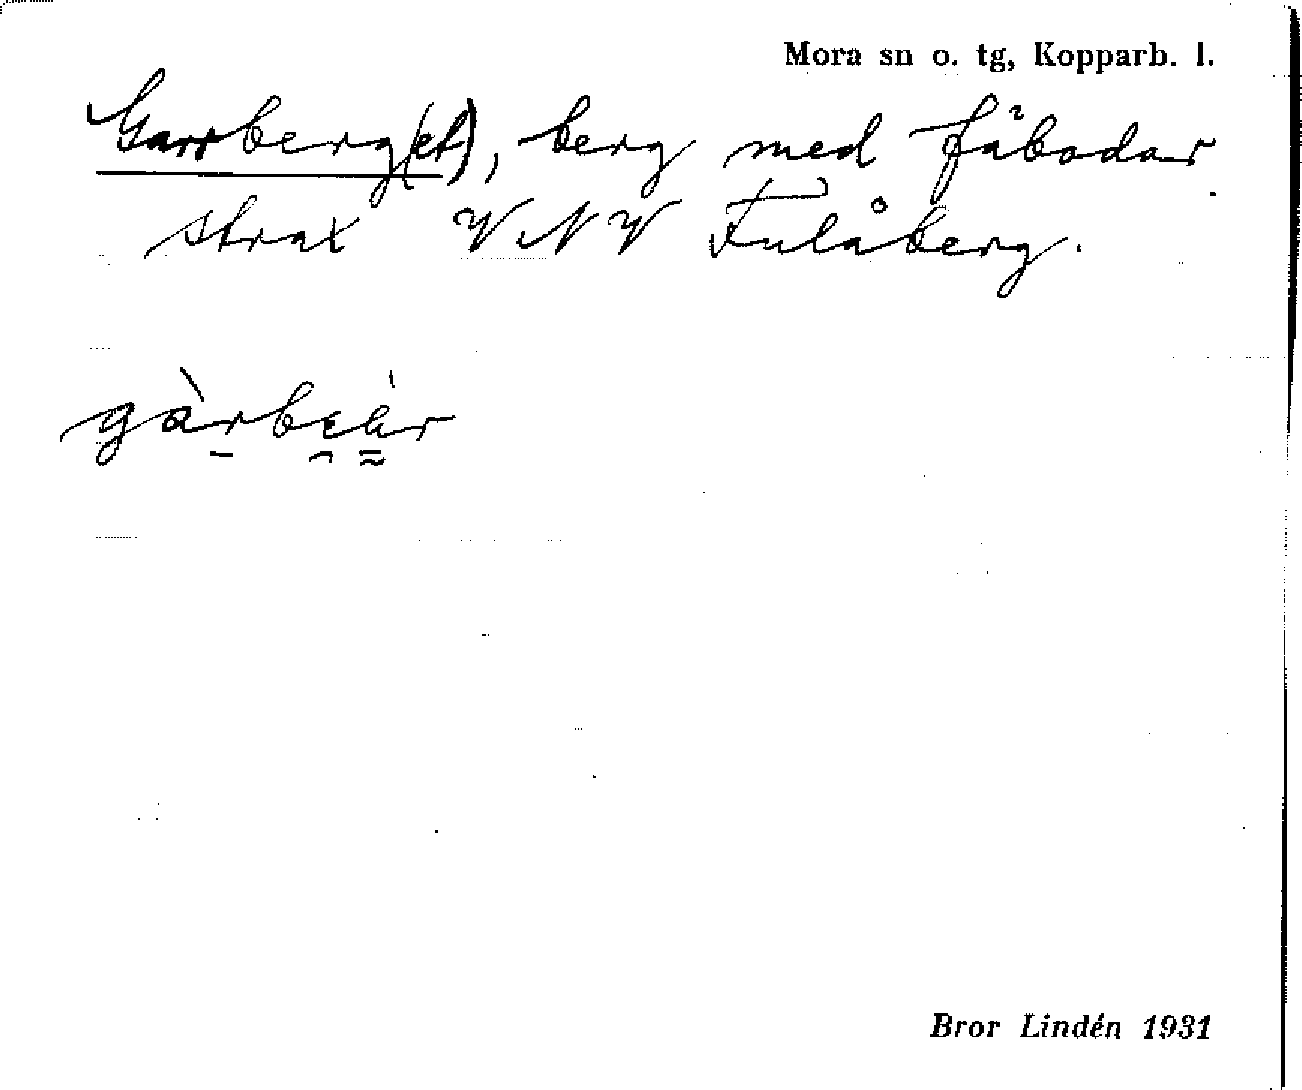 Mora sn o. tg, Kopparb. l.
Garrberg(et), berg med fäbodar
strax VNV Fulåberg.
Bror Lindén 1931